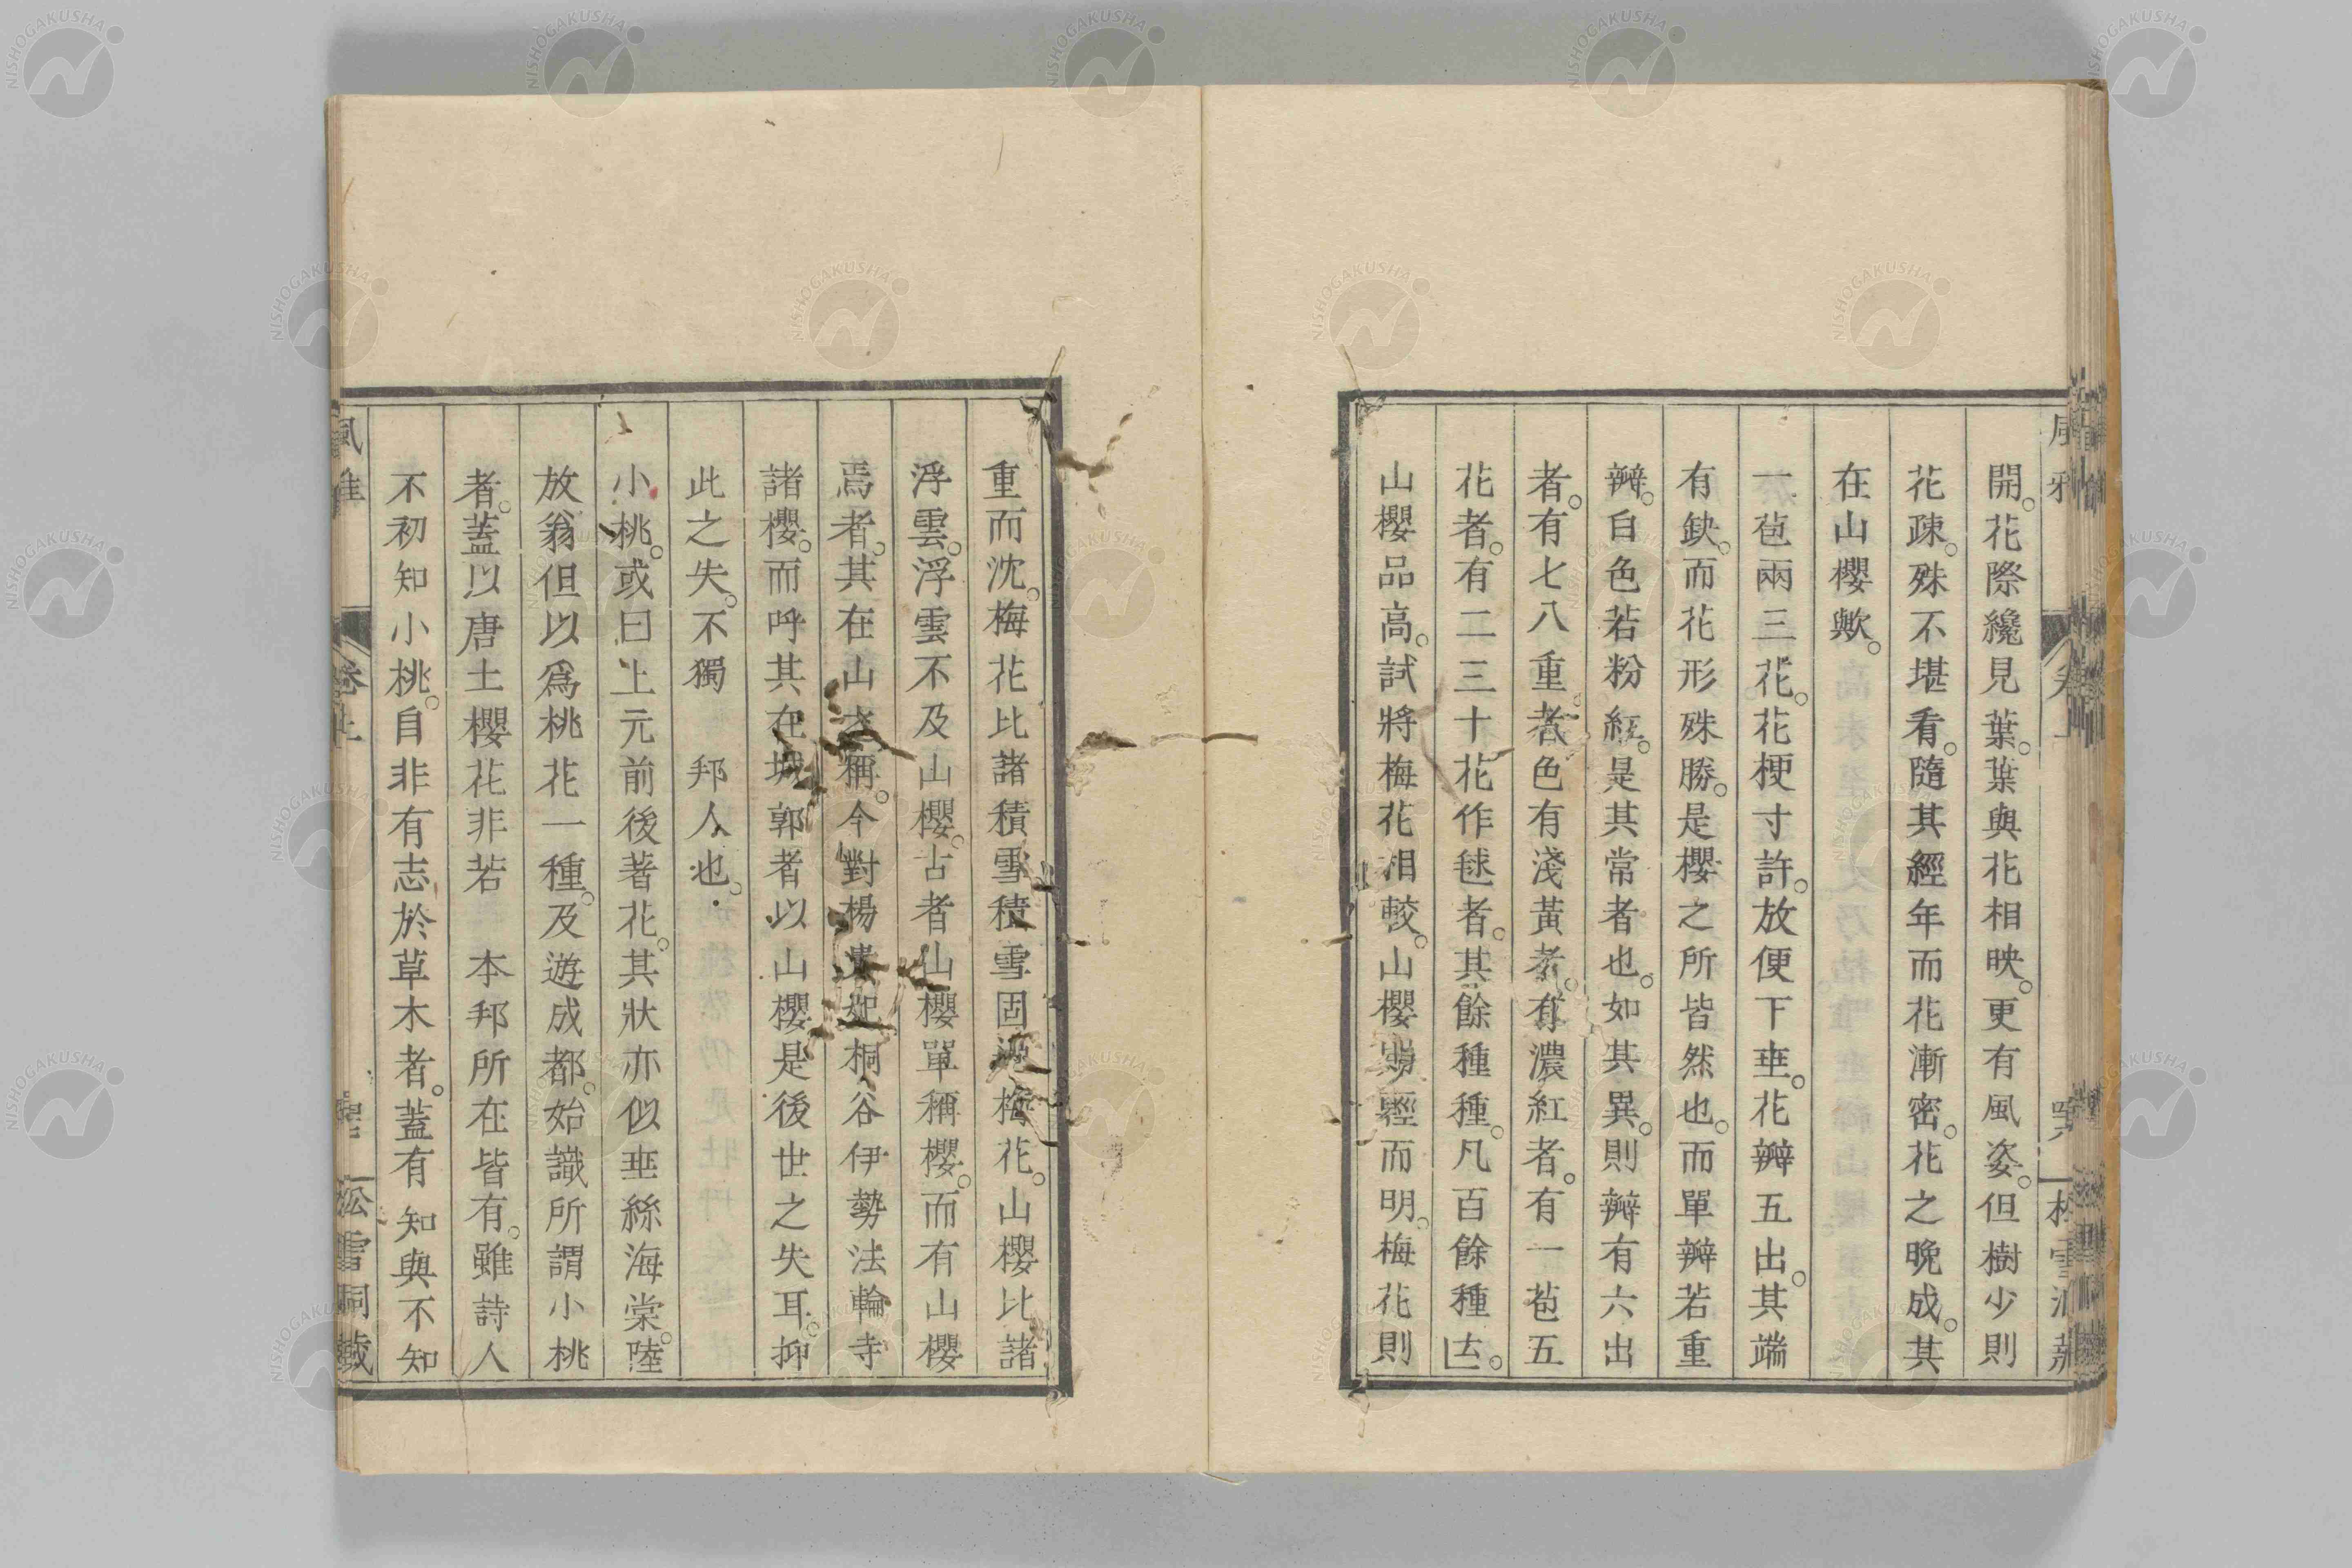 開。花際纔見葉。葉與花相映。更有風姿。但樹少則
花疎。殊不堪看。隨其經年而花漸密。花之晚成。其
在山櫻歟。
一苞兩三花。花梗寸許。放便下垂。花瓣五出。其端
有鈌。而花形殊勝。是櫻之所皆然也。而單瓣若重
瓣。白色若粉紅。是其常者也。如其異。則瓣有六出
者。有七八重者色有淺黃者。有濃紅者。有一苞五
花者。有二三十花作毬者。其餘種種。凡百餘種𠫓。
山櫻品高。試將梅花相較。山櫻易輕而明。梅花則
重而沈。梅花比諸積雪積雪固 梅花。山櫻比諸
浮雲。浮雲不及山櫻。古者山櫻單稱櫻。而有山櫻
焉者。其在山之稱。今對楊貴妃桐谷伊勢法輪寺
諸櫻。而呼其在城郭者以山櫻是後世之失耳。抑
此之失。不獨 邦人也。
小桃。或曰上元前後著花。其狀亦似垂絲海棠。陸
放翁但以爲桃花一種。及遊成都。始識所謂小桃
者。蓋以唐土櫻花非若 本邦所在皆有。雖詩人
不初知小桃。自非有志於草木者。蓋有知與不知
風雅
卷上
松雪洞藏
NISHOGAKUSHA